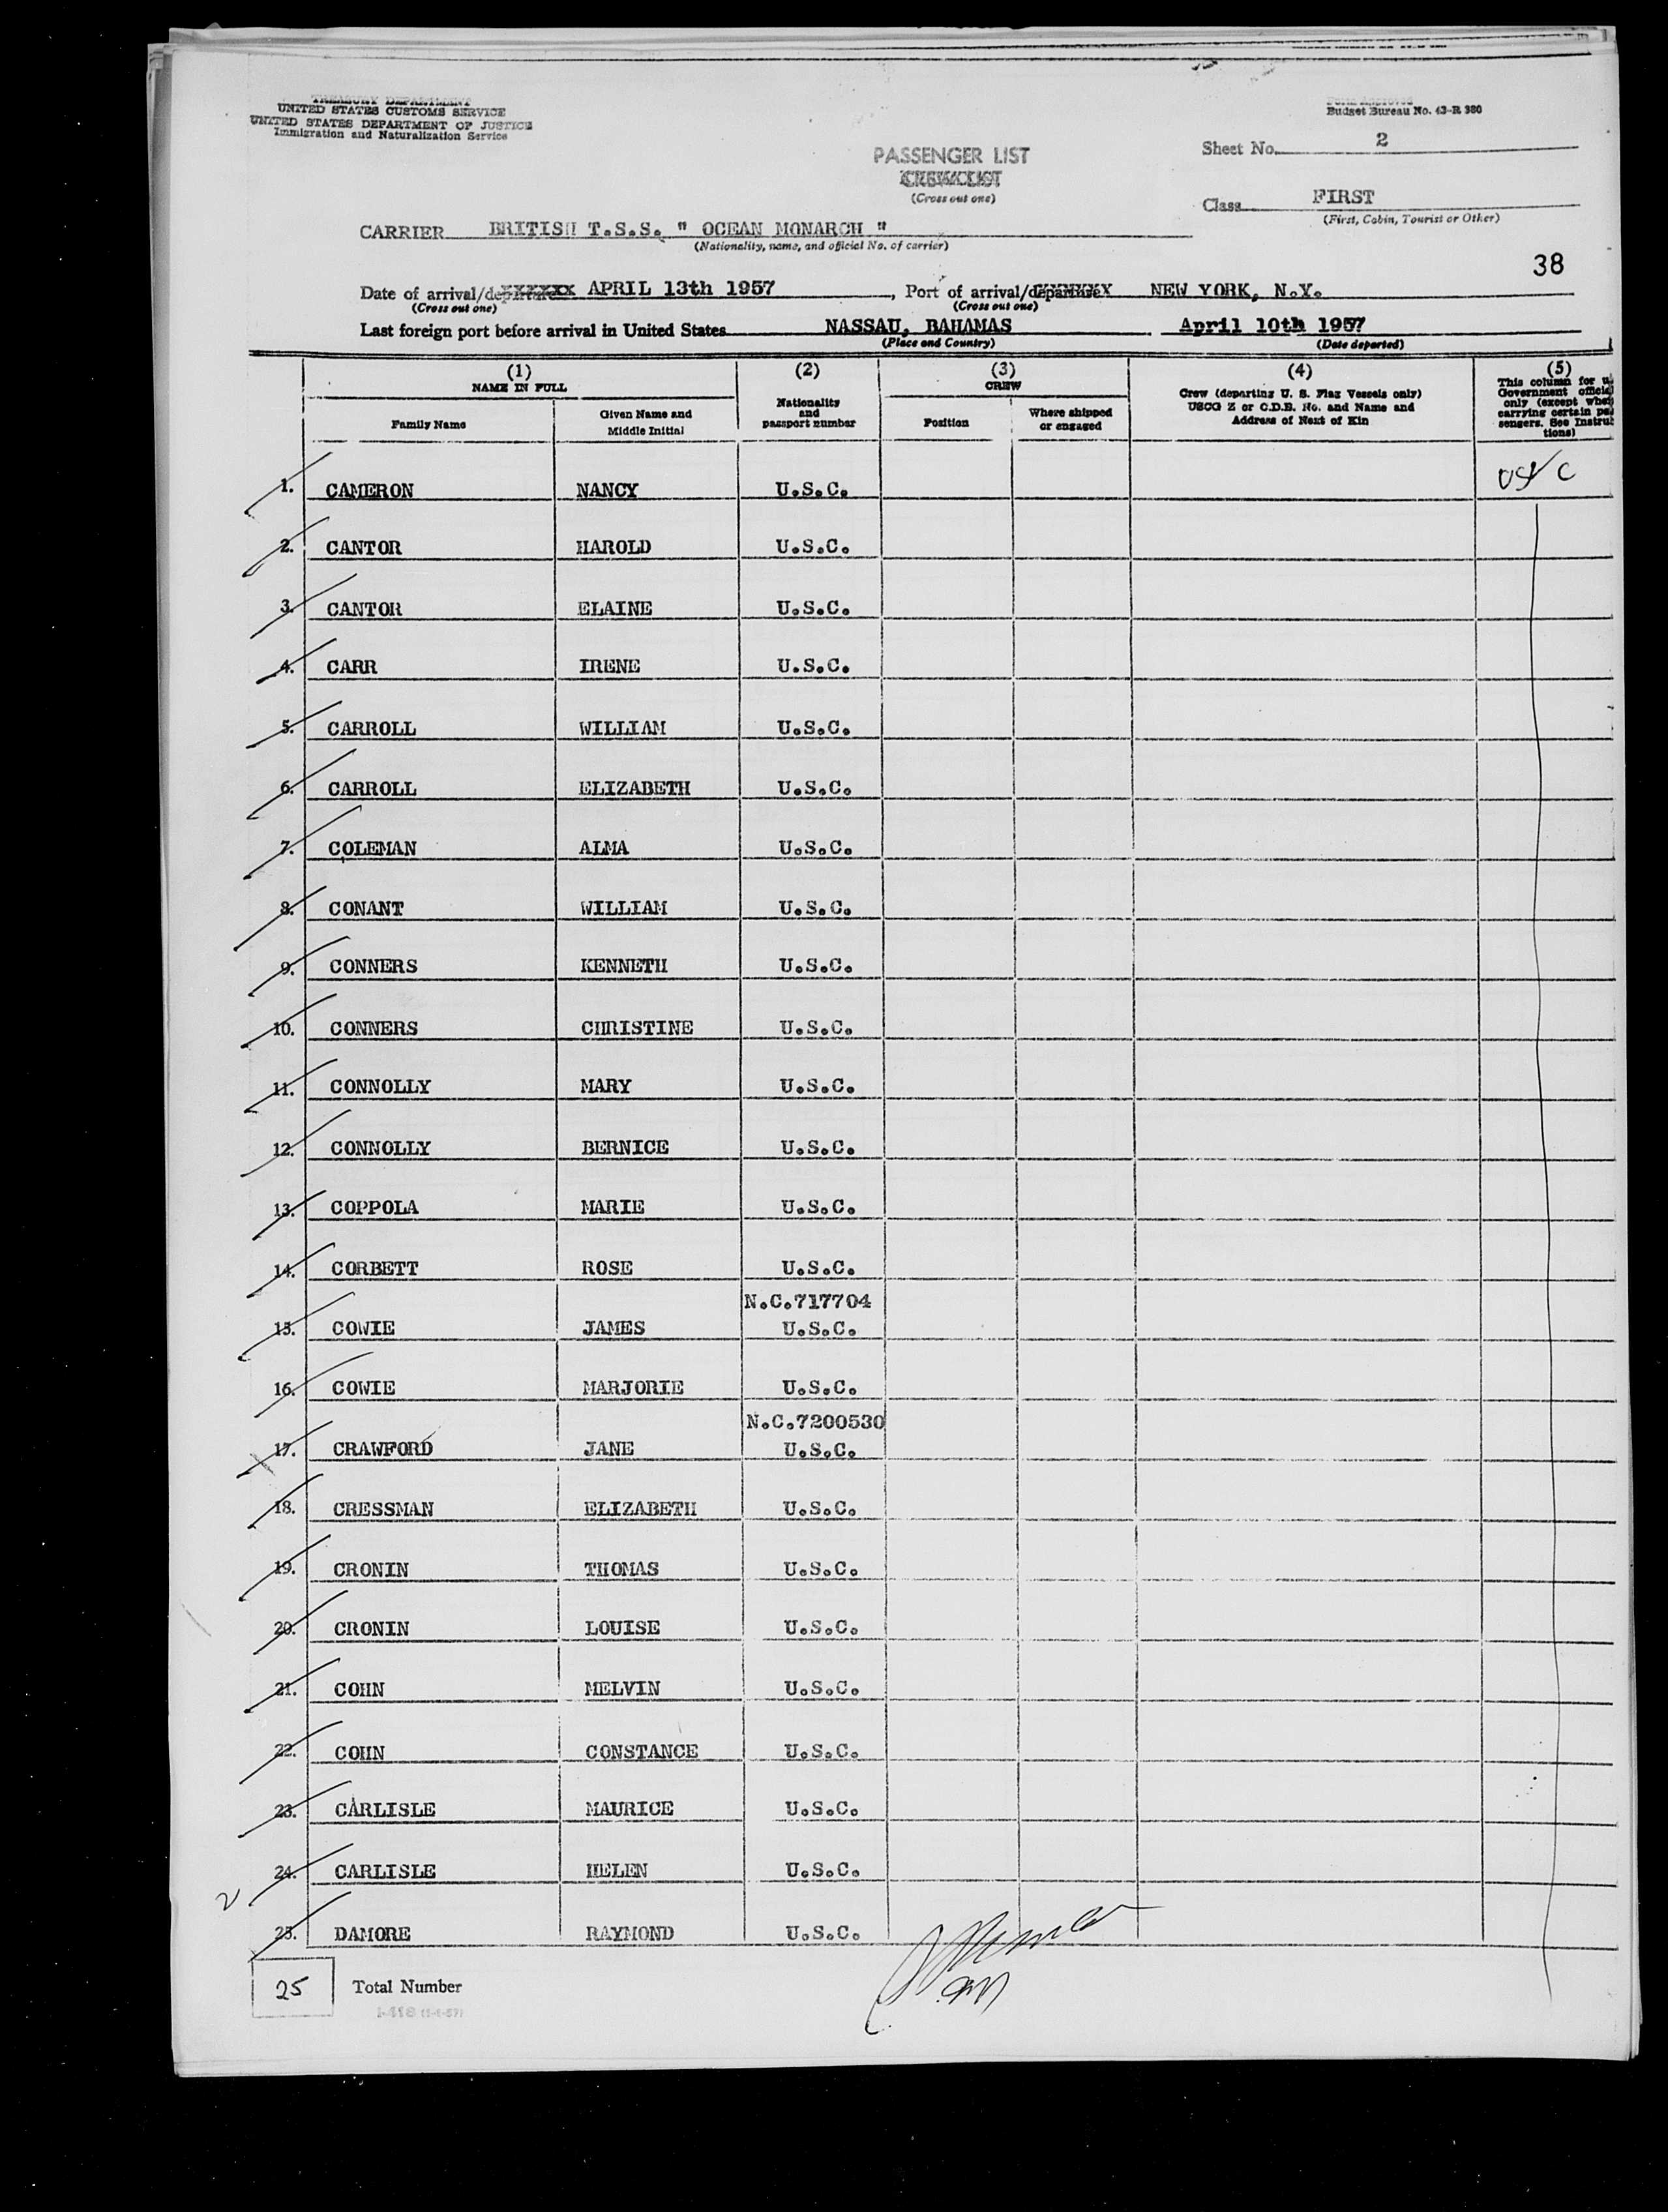 TREASURY DEPARTMENT
UNITED STATES CUSTOMS SERVICE
UNITED STATES DEPARTMENT OF JUSTICE
Immigration and Naturalization Service
Form Approved
Budget Bureau No. 43-R 380
Sheet No. 2
PASSENGER LIST
CREW LIST
(Cross out one)
Class FIRST
(First, Cabin, Tourist or Other)
CARRIER BRITISH T.S.S. " OCEAN MONARCH "
(Nationality, name, and official No. of carrier)
38
Date of arrival/departure APRIL 13th 1957, Port of arrival/departure NEW YORK, N.Y.
(Cross out one) (Cross out one)
Last foreign port before arrival in United States NASSAU, BAHAMAS April 10th 1957
(Place and Country) (Date departed)
(1) (2) (3) (4) (5)
NAME IN FULL
Family Name
Given Name and Middle Initial
Nationality and passport number
CREW
Position
Where shipped or engaged
Crew (departing U. S. Flag Vessels only)
USCG Z or C.D.B. No. and Name and
Address of Next of Kin
This column for
Government
only (except
carrying certain
sengers. See
tions)
1. CAMERON NANCY U.S.C. US C
2. CANTOR HAROLD U.S.C.
3. CANTOR ELAINE U.S.C.
4. CARR IRENE U.S.C.
5. CARROLL WILLIAM U.S.C.
6. CARROLL ELIZABETH U.S.C.
7. COLEMAN ALMA U.S.C.
8. CONANT WILLIAM U.S.C.
9. CONNERS KENNETH U.S.C.
10. CONNERS CHRISTINE U.S.C.
11. CONNOLLY MARY U.S.C.
12. CONNOLLY BERNICE U.S.C.
13. COPPOLA MARIE U.S.C.
14. CORBETT ROSE U.S.C.
N.C.717704
15. COWIE JAMES U.S.C.
16. COWIE MARJORIE U.S.C.
N.C.7200530
17. CRAWFORD JANE U.S.C.
18. CRESSMAN ELIZABETH U.S.C.
19. CRONIN THOMAS U.S.C.
20. CRONIN LOUISE U.S.C.
21. COHN MELVIN U.S.C.
22. COHN CONSTANCE U.S.C.
23. CARLISLE MAURICE U.S.C.
24. CARLISLE HELEN U.S.C.
2
25. DAMORE RAYMOND U.S.C.
25 Total Number
I-418 (1-1-57)